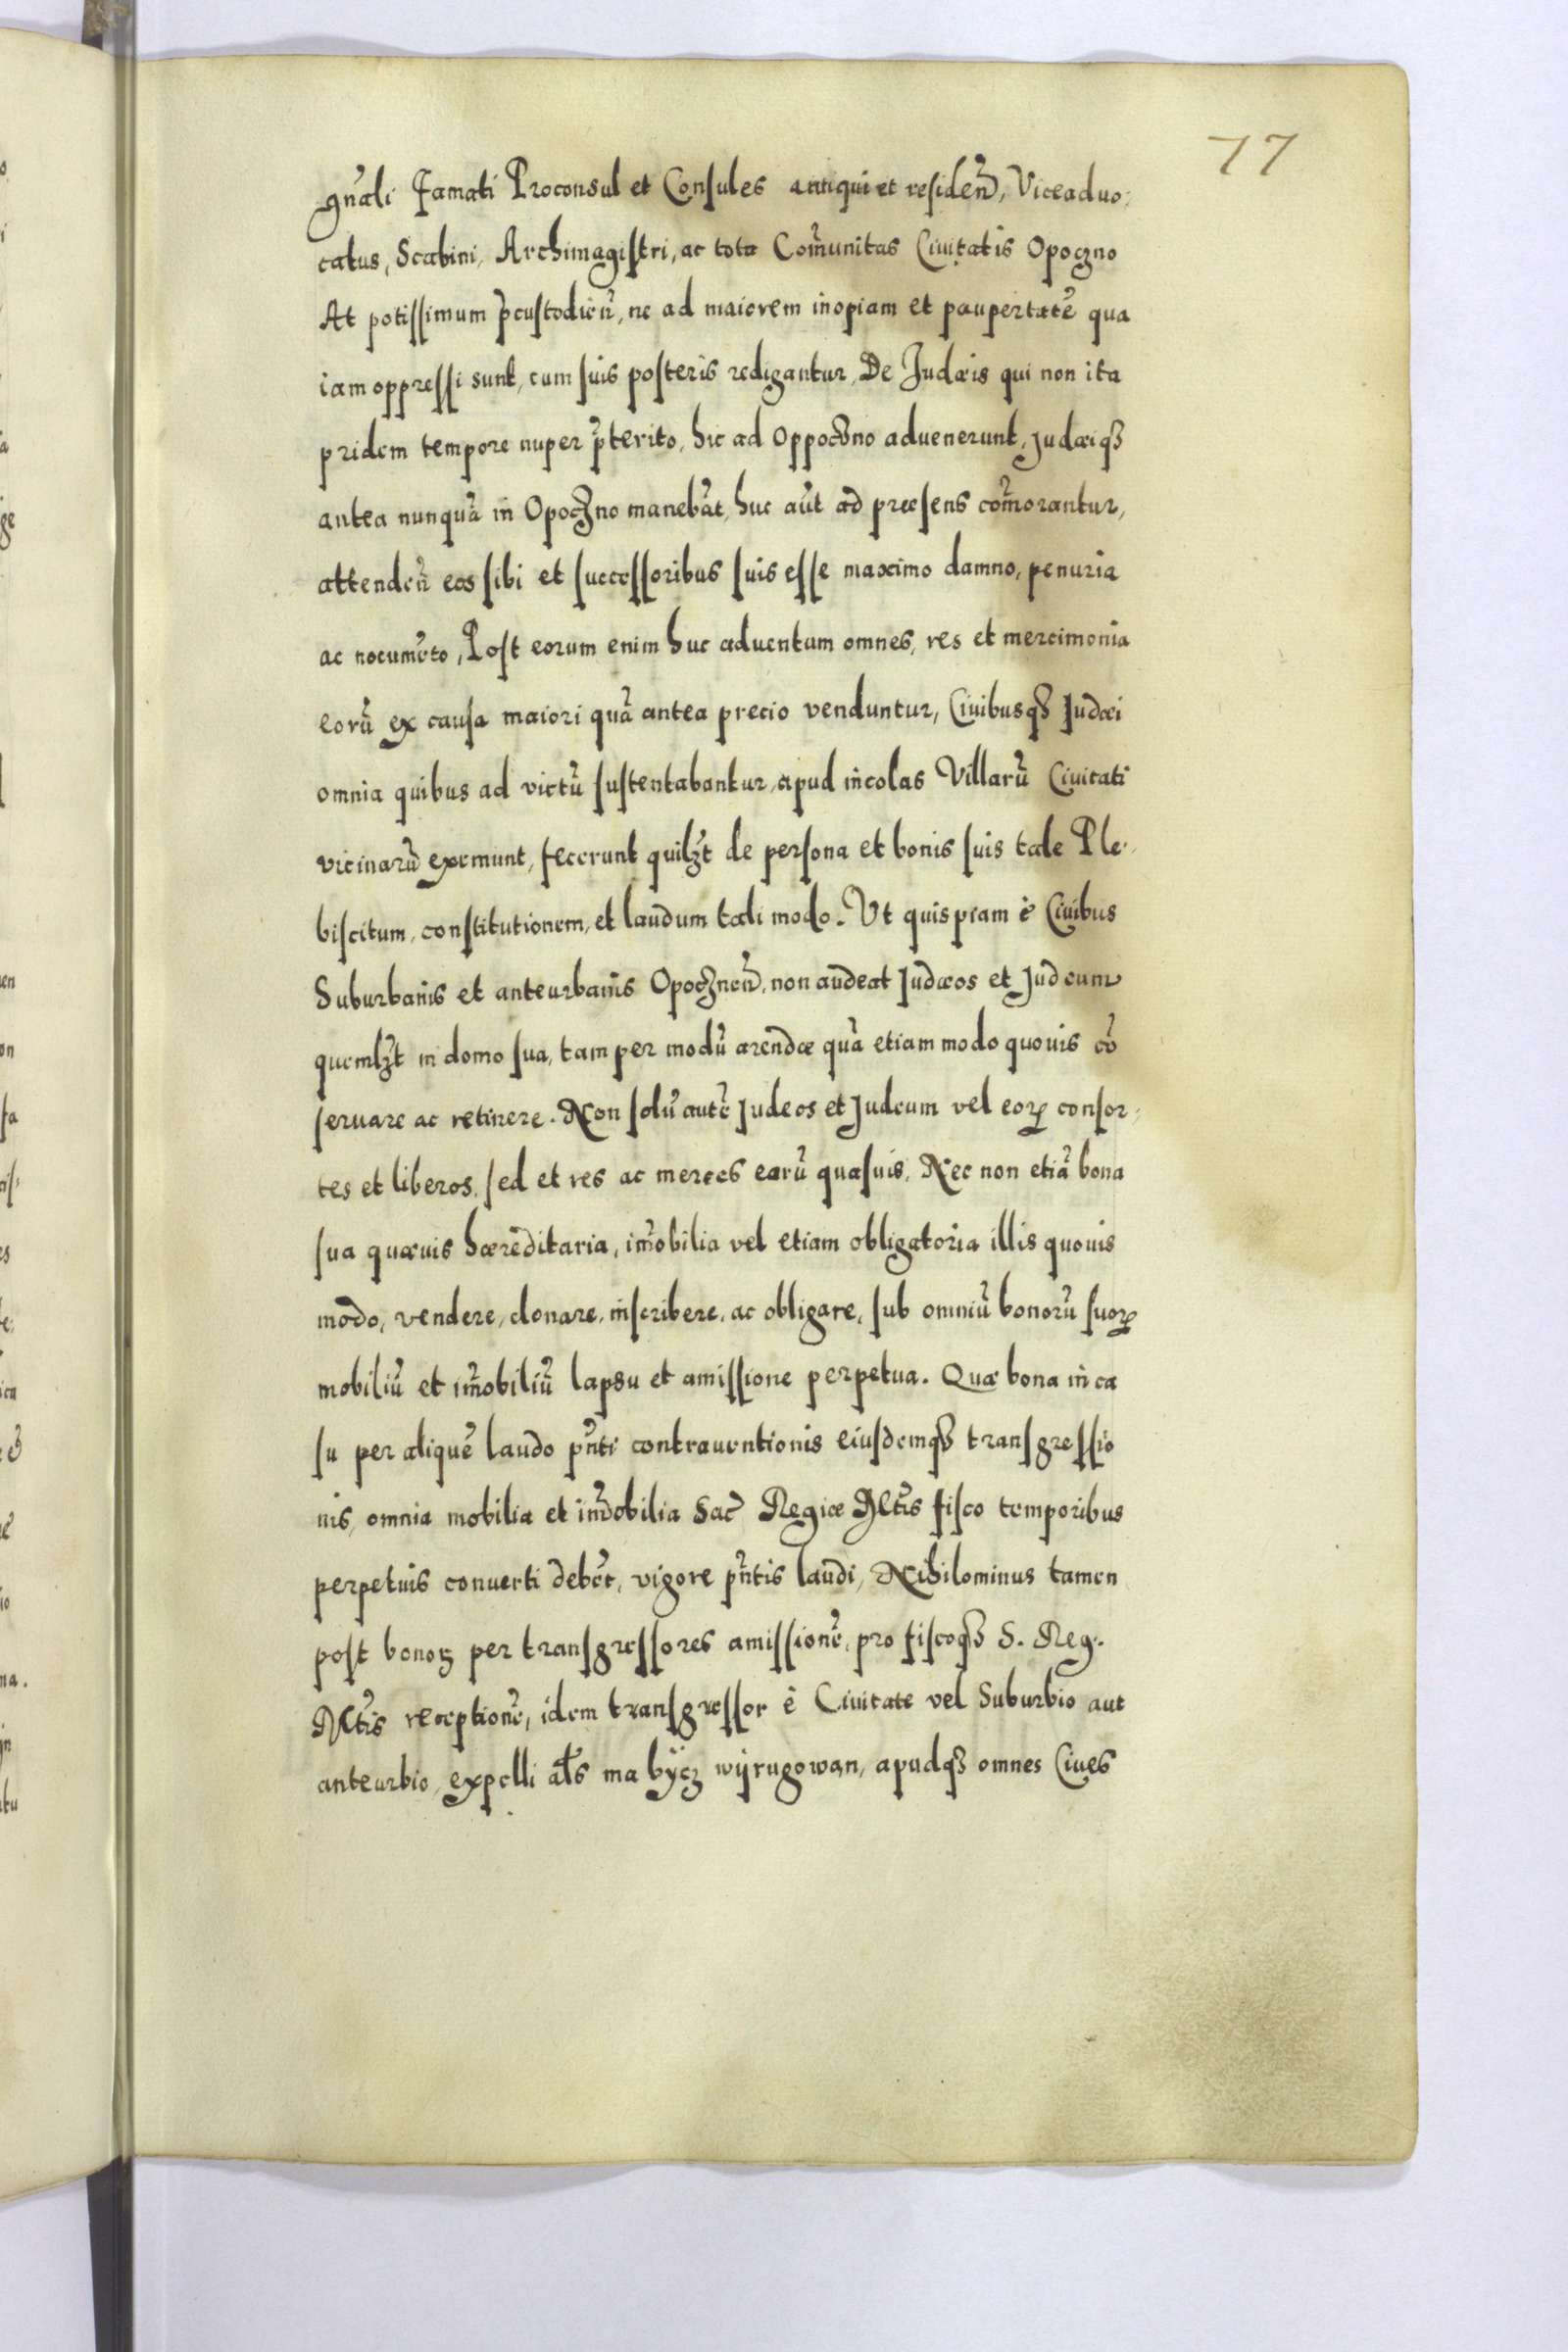 77
gn̄ali Famati Proconsul et Consules antiqui et residen̄, Viceaduo,
catus, Scabini, Archimagistri, ac tota Com̄unitas Ciuitatis Opoczno
At potissimum p̄custodien̄, ne ad maiorem inopiam et paupertatē qua
iam oppressi sunt, cum suis posteris redigantur, De Judæis qui non ita
pridem tempore nuper p̄terito, hic ad Oppoczno aduenerunt, Judæiqꝫ
antea nunquā in Opoczno manebāt, huc aūt ad præsens com̄orantur,
attenden̄ eos sibi et successoribus suis esse maximo damno, penuria
ac nocumēto, Post eorum enim huc aduentum omnes, res et mercimonia
eorū ex causa maiori quā antea precio venduntur, Ciuibusqꝫ Judæi
omnia quibus ad victū sustentabantur, apud incolas Villarū Ciuitati
vicinarū exemunt, fecerunt quilꝫt de persona et bonis suis tale Ple,
biscitum, constitutionem, et laudum tali modo. Vt quispiam è Ciuibus
Suburbanis et anteurbanis Opocznen̄, non audeat Judæos et Judeum
quemlꝫt in domo sua, tam per modū arendæ quā etiam modo quouis cō
seruare ac retinere. Non solū autē Judeos et Judeum vel eoꝝ consor,
tes et liberos, sed et res ac merces earū quasuis, Nec non etiā bona
sua quæuis hæreditaria, im̄obilia vel etiam obligatoria illis quouis
modo, vendere, donare, inscribere, ac obligare, sub omniū bonorū suoꝝ
mobiliū et im̄obiliū lapsu et amissione perpetua. Quæ bona in ca
su per aliquē laudo pn̄ti contrauentionis eiusdemqꝫ transgressio
nis, omnia mobilia et im̄obilia Sac̄ Regiæ Mt̄is fisco temporibus
perpetuis conuerti debēt, vigore pn̄tis laudi, Nihilominus tamen
post bonoꝝ per transgressores amissionē, pro fiscoqꝫ S. Reg.
Mt̄is receptionē, idem transgressor è Ciuitate vel Suburbio aut
anteurbio, expelli al̄s ma bÿcz wÿrugowan, apudqꝫ omnes Ciues